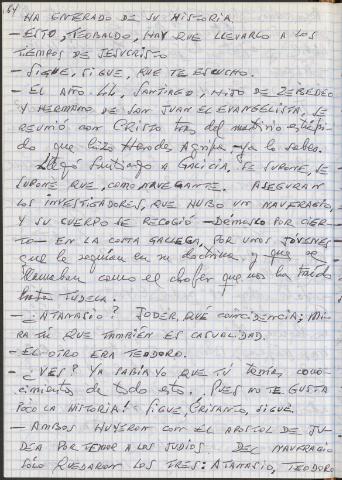 64
HA ENTERADO DE SU HISTORIA.
— ESTO, TEOBALDO, HAY QUE LLEVARLO A LOS
TIEMPOS DE JESUCRISTO
— SIGUE, SIGUE, QUE TE ESCUCHO.
— EL AÑO 44, SANTIAGO, HIJO DE ZEBEDEO
Y HERMANO DE SAN JUAN EL EVANGELISTA, SE
REUNIÓ CON CRISTO tras del martirio
do que hizo Herodes Agripa — ya lo sabes.
Llegó Santiago a GALICIA, SE SUPONE, SE
SUPONE QUE, COMO NAVEGANTE. ASEGURAN
LOS INVESTIGADORES, QUE HUBO UN NAUFRAGIO,
Y SU CUERPO SE RECOGIÓ — DÉMOSLO POR CIER
TO — EN LA COSTA GALLEGA, POR UNOS JÓVENES
que le seguían en su doctrina y que se
llamaban como el chofer que nos ha traído
TUDELA.
— ¿ATANASIO? JODER, QUÉ COINCIDENCIA; MI
RA TÚ QUE TAMBIÉN ES CASUALIDAD.
— EL OTRO ERA TEODORO.
— ¿VES? YA SABÍA YO QUE TÚ tenías cono-
cimientos de todo esto. PUES NO TE GUSTA
POCO LA HISTORIA! SIGUE, CRISANTO, SIGUE.
— AMBOS HUYERON CON EL APOSTOL DE JU-
DEA POR TEMOR A LOS JUDIOS. DEL NAUFRAGIO
SÓLO QUEDARON LOS TRES: ATANASIO, TEODORO